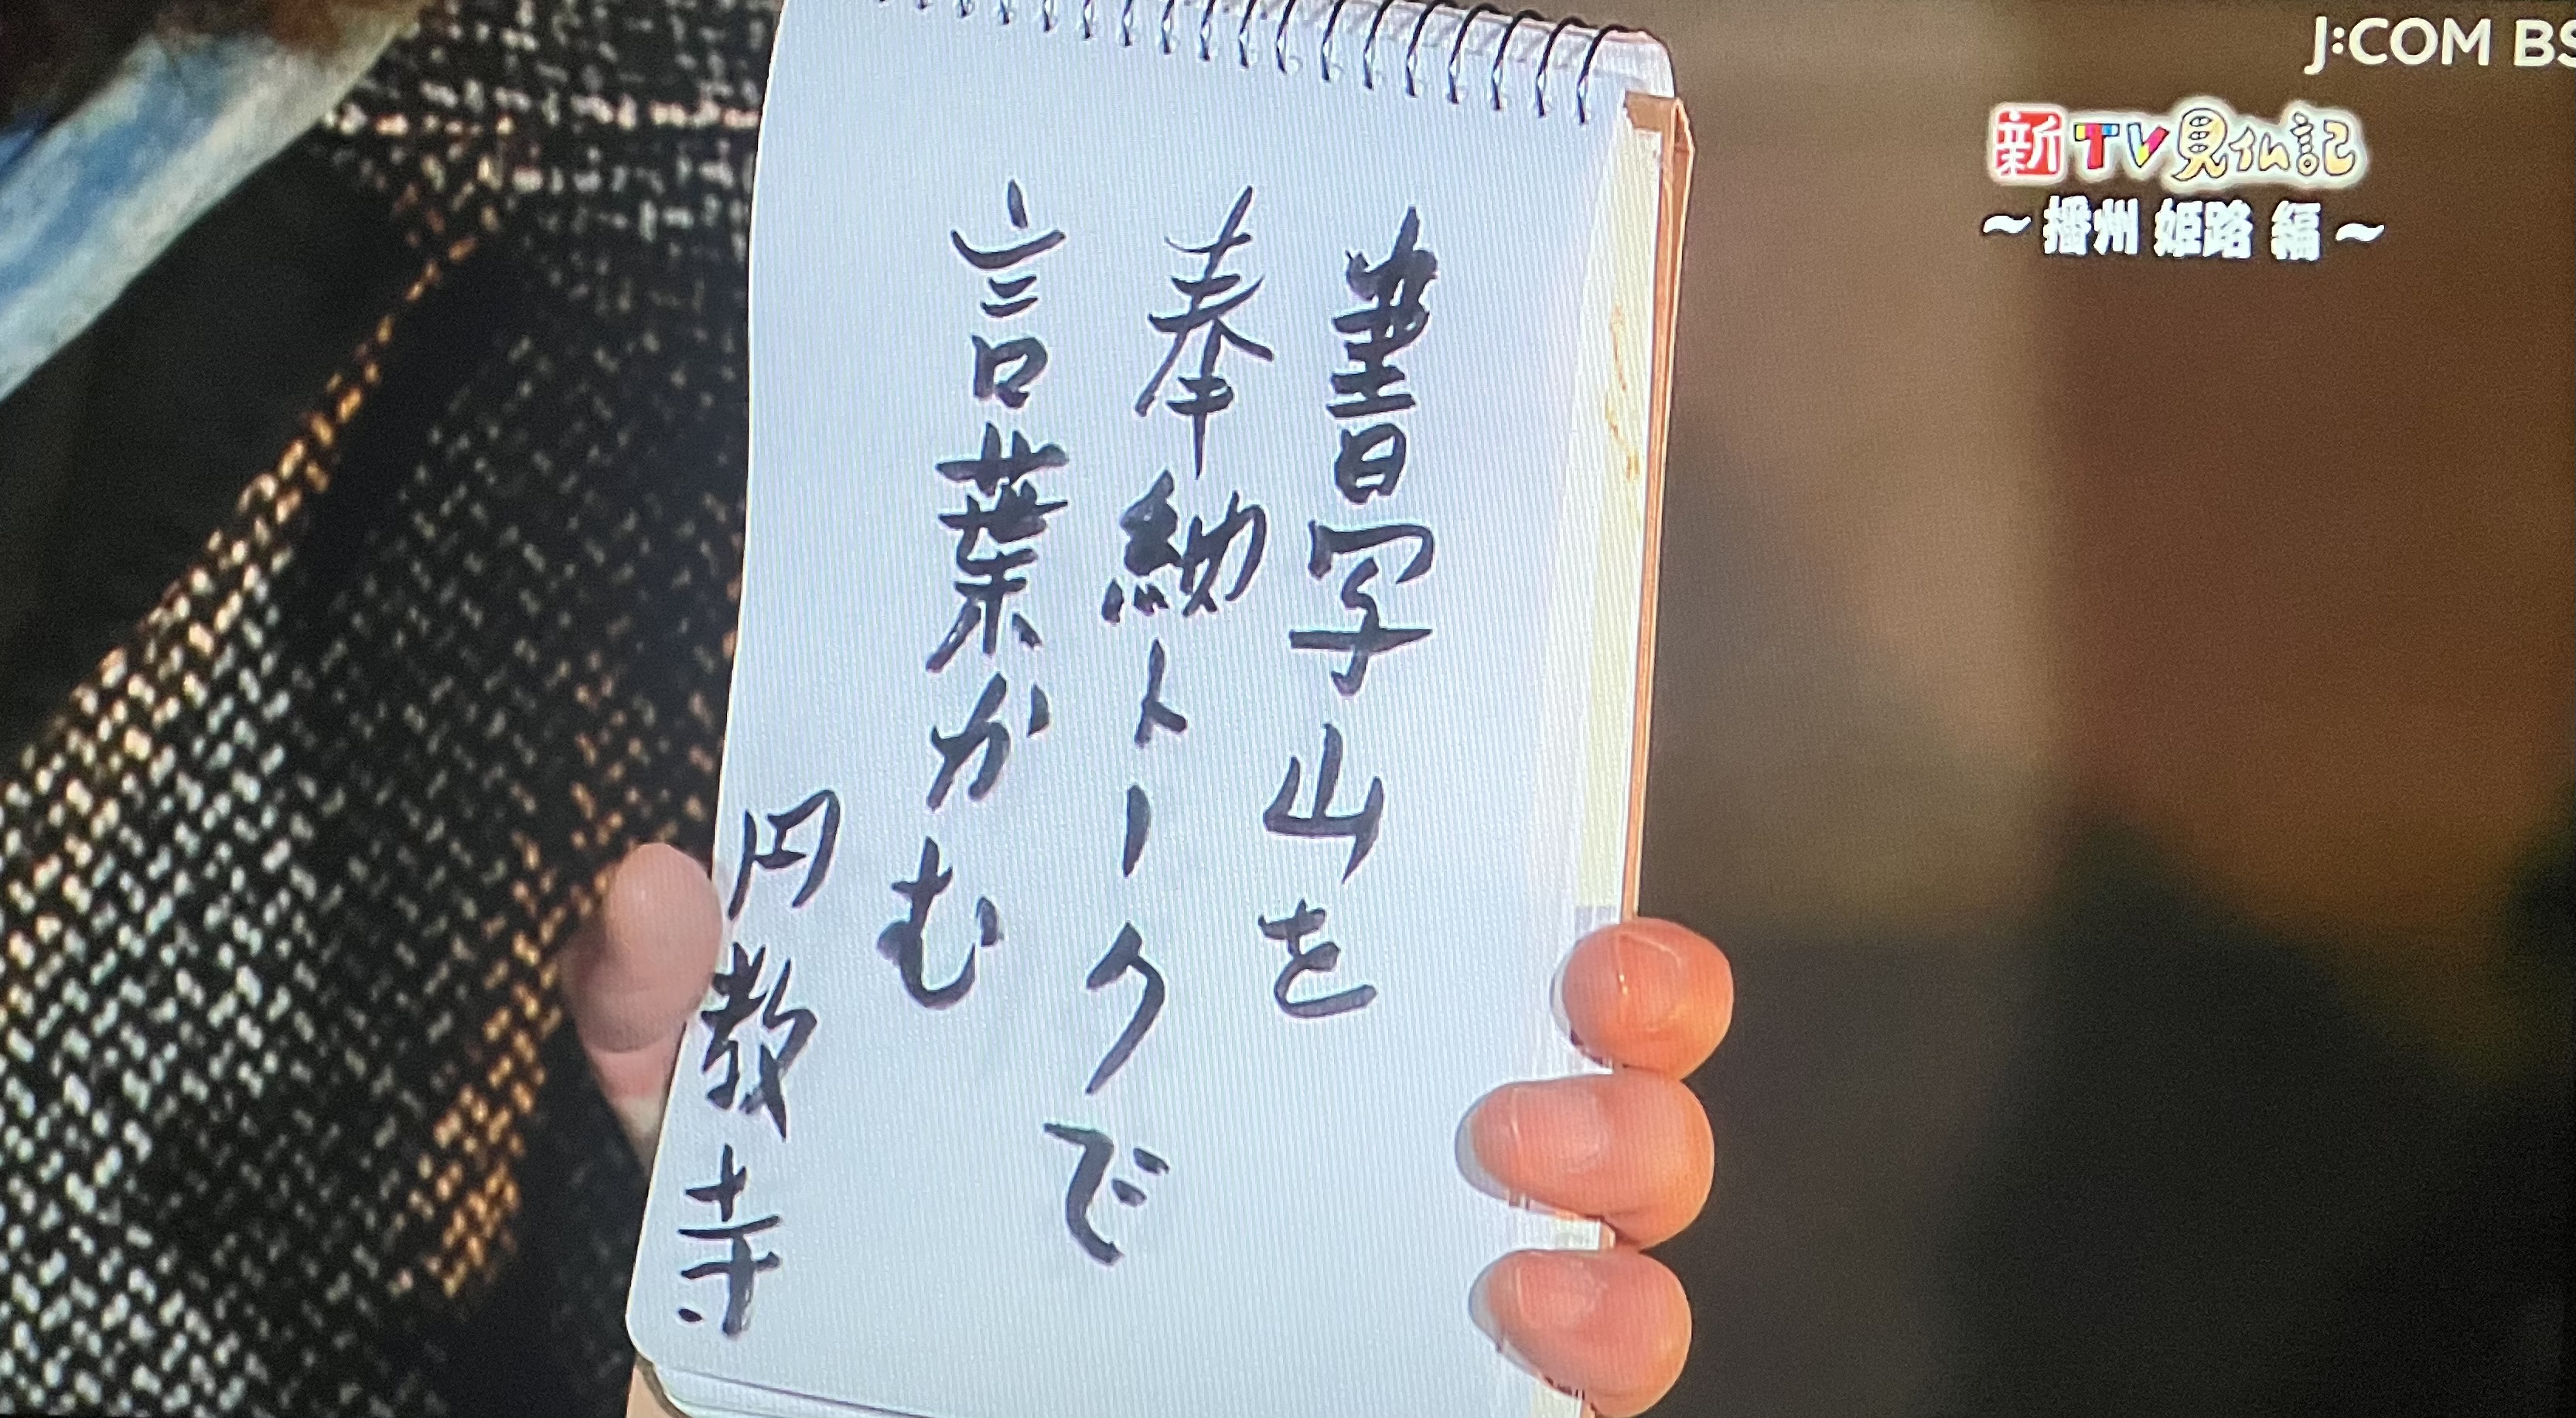 書写山を
奉納トークで
言葉かむ
円教寺
J:COM BS
新TV見仏記
～播州 姫路 編～